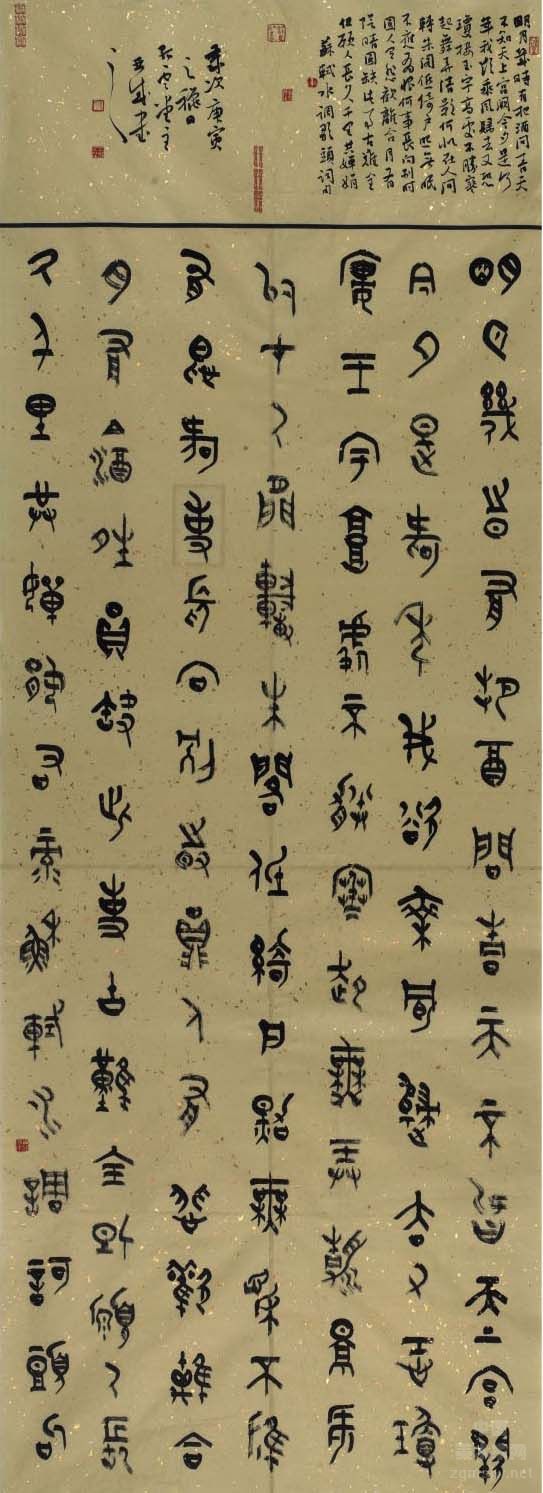 明月幾時有把酒問青天
不知天上宮闕今夕是何
年我欲乘風歸去又恐
瓊樓玉宇高處不勝寒
起舞弄清影何似在人间
轉朱閣低綺户照無眠
不應有恨何事長向别時
圓人有悲歡離合月有
陰晴圓缺此事古難全
但願人長久千里共嬋娟
蘇軾水調歌頭詞句
歲次庚寅
之穐日
堂主
書
明月幾時有把酒問青天不知天上宮闕
今夕是何年我欲乘風歸去又恐瓊
樓玉宇高處不勝寒起舞弄清影何
似在人間轉朱閣低綺戶照無眠不應
有恨何事長向別時圓人有悲歡離合
月有陰晴圓缺此事古難全但願人長
久千里共嬋娟蘇軾水調歌頭句